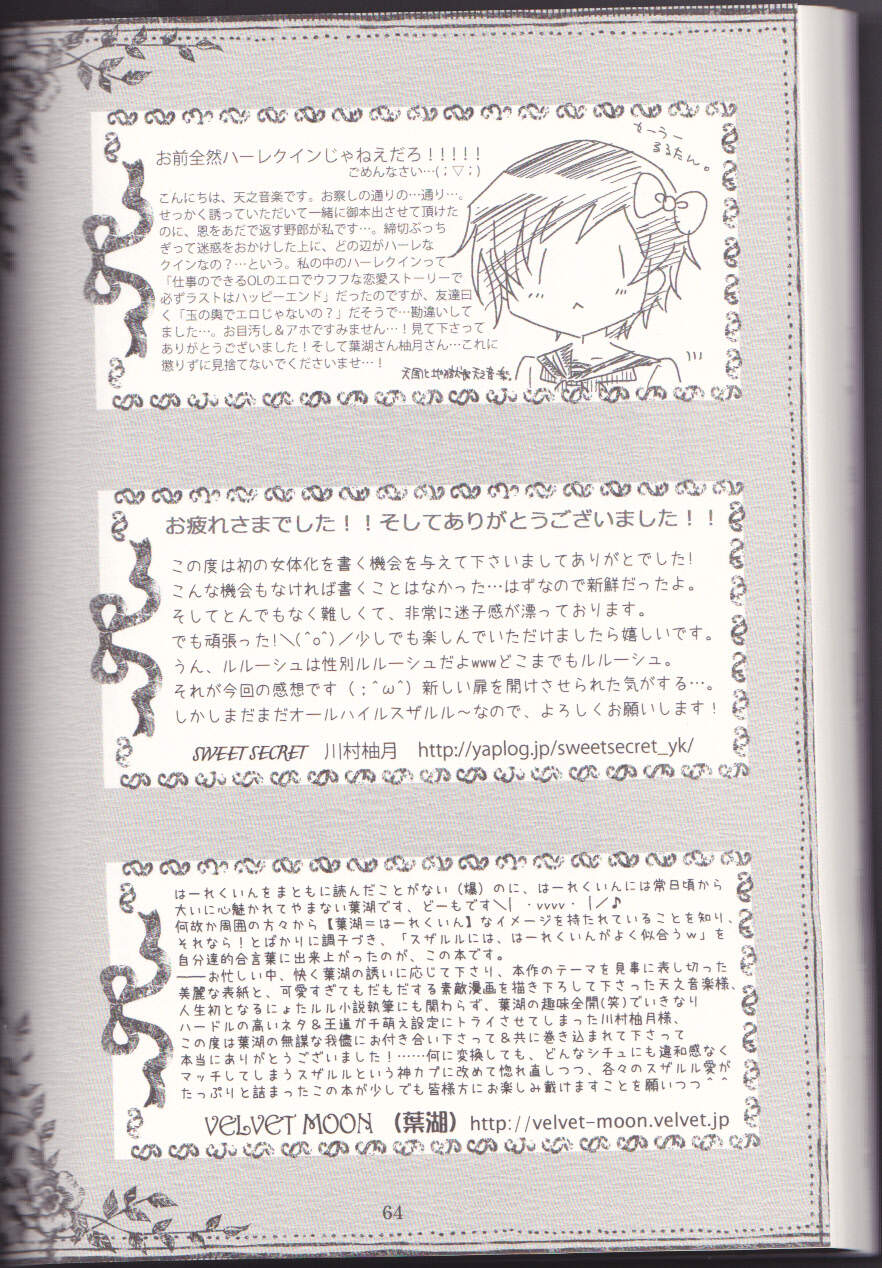 お前全然ハーレクインじゃねえだろ！！！！！
ごめんなさい…(；▽；)
こんにちは、天之音楽です。お察しの通りの…通り…。
せっかく誘っていただいて一緒に御本出させて頂けた
のに、恩をあだで返す野郎が私です…。締切ぶっち
ぎって迷惑をおかけした上に、どの辺がハーレな
クインなの？…という。私の中のハーレクインって
「仕事のできるOLのエロでウフフな恋愛ストーリーで
必ずラストはハッピーエンド」だったのですが、友達曰
く「玉の輿でエロじゃないの？」だそうで…勘違いして
ました…。お目汚し＆アホですみません…！見て下さって
ありがとうございました！そして葉湖さん柚月さん…これに
懲りずに見捨てないでくださいませ…！
天国と地獄 天之音楽。
るるたん。
お疲れさまでした！！そしてありがとうございました！！
この度は初の女体化を書く機会を与えて下さいましてありがとでした!
こんな機会もなければ書くことはなかった…はずなので新鮮だったよ。
そしてとんでもなく難しくて、非常に迷子感が漂っております。
でも頑張った!＼(^o^)／少しでも楽しんでいただけましたら嬉しいです。
うん、ルルーシュは性別ルルーシュだよwwwどこまでもルルーシュ。
それが今回の感想です（；^ω^）新しい扉を開けさせられた気がする…。
しかしまだまだオールハイルスザルル～なので、よろしくお願いします！
SWEET SECRET 川村柚月 http://yaplog.jp/sweetsecret_yk/
はーれくいんをまともに読んだことがない（爆）のに、はーれくいんには常日頃から
大いに心魅かれてやまない葉湖です、どーもです＼|　・vvvv・　|／♪
何故か周囲の方々から【葉湖＝はーれくいん】なイメージを持たれていることを知り、
それなら！とばかりに調子づき、「スザルルには、はーれくいんがよく似合うｗ」を
自分達的合言葉に出来上がったのが、この本です。
――お忙しい中、快く葉湖の誘いに応じて下さり、本作のテーマを見事に表し切った
美麗な表紙と、可愛すぎてもだもだする素敵漫画を描き下ろして下さった天之音楽様、
人生初となるにょたルル小説執筆にも関わらず、葉湖の趣味全開(笑)でいきなり
ハードルの高いネタ＆王道ガチ萌え設定にトライさせてしまった川村柚月様、
この度は葉湖の無謀な我儘にお付き合い下さって＆共に巻き込まれて下さって
本当にありがとうございました！……何に変換しても、どんなシチュにも違和感なく
マッチしてしまうスザルルという神カプに改めて惚れ直しつつ、各々のスザルル愛が
たっぷりと詰まったこの本が少しでも皆様方にお楽しみ戴けますことを願いつつ＾＾
VELVET MOON （葉湖）http://velvet-moon.velvet.jp
64